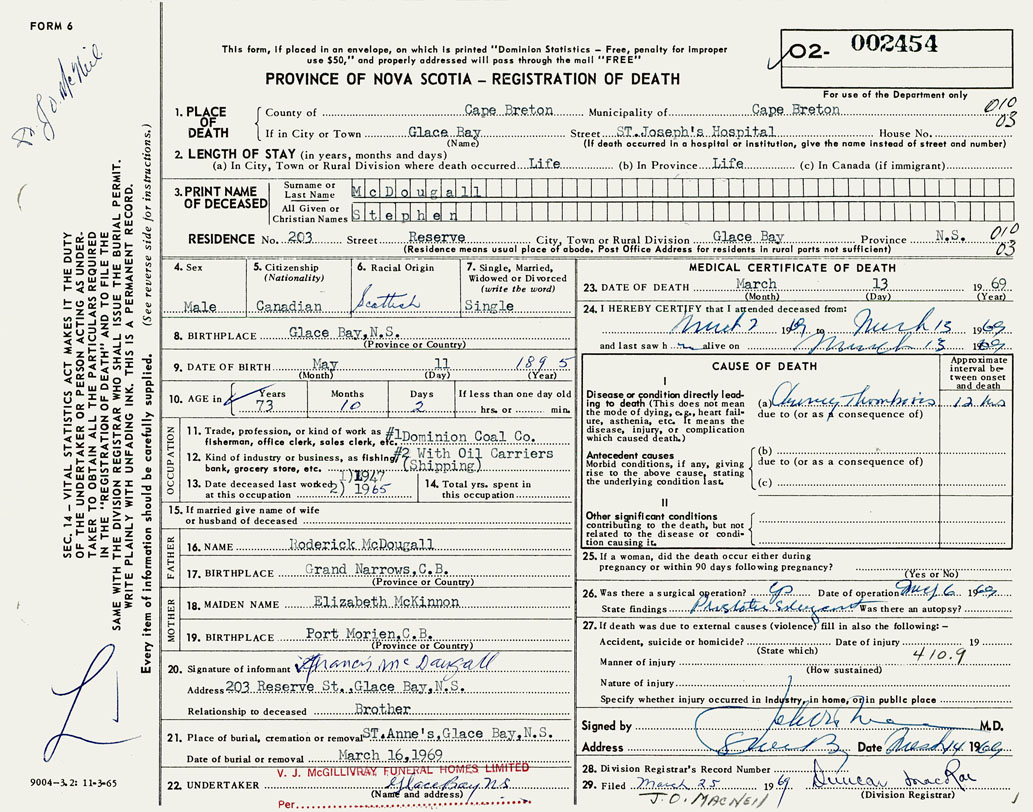 FORM 6
Dr. J.O. McNeil
This form, if placed in an envelope, on which is printed "Dominion Statistics – Free, penalty for improper
use $50," and properly addressed will pass through the mail "FREE"
PROVINCE OF NOVA SCOTIA – REGISTRATION OF DEATH
02- 002454
For use of the Department only
1. PLACE OF DEATH
County of Cape Breton Municipality of Cape Breton 010
If in City or Town Glace Bay Street ST.Joseph's Hospital House No. 03
(Name) (If death occurred in a hospital or institution, give the name instead of street and number)
2. LENGTH OF STAY (in years, months and days)
(a) In City, Town or Rural Division where death occurred Life (b) In Province Life (c) In Canada (if immigrant)
3. PRINT NAME OF DECEASED
Surname or Last Name McDougall
All Given or Christian Names Stephen
RESIDENCE No. 203 Street Reserve City, Town or Rural Division Glace Bay Province N.S. 010
(Residence means usual place of abode. Post Office Address for residents in rural parts not sufficient) 03
4. Sex
Male
5. Citizenship (Nationality)
Canadian
6. Racial Origin
Scottish
7. Single, Married, Widowed or Divorced (write the word)
Single
8. BIRTHPLACE Glace Bay,N.S.
(Province or Country)
9. DATE OF BIRTH May 11 1895
(Month) (Day) (Year)
10. AGE in Years 73 Months 10 Days 2 If less than one day old hrs. or min.
OCCUPATION
11. Trade, profession, or kind of work as fisherman, office clerk, sales clerk, etc. #1Dominion Coal Co.
12. Kind of industry or business, as fishing, bank, grocery store, etc. #2 With Oil Carriers (Shipping)
13. Date deceased last worked at this occupation 1)1947 2) 1965
14. Total yrs. spent in this occupation
15. If married give name of wife or husband of deceased
FATHER
16. NAME Roderick McDougall
17. BIRTHPLACE Grand Narrows,C.B.
(Province or Country)
MOTHER
18. MAIDEN NAME Elizabeth McKinnon
19. BIRTHPLACE Port Morien,C.B.
(Province or Country)
20. Signature of informant Francis McDougall
Address 203 Reserve St.,Glace Bay,N.S.
Relationship to deceased Brother
21. Place of burial, cremation or removal ST.Anne's,Glace Bay,N.S.
Date of burial or removal March 16,1969
V. J. McGILLIVRAY FUNERAL HOMES LIMITED
22. UNDERTAKER Glace Bay N.S.
(Name and address)
Per
MEDICAL CERTIFICATE OF DEATH
23. DATE OF DEATH March 13 1969
(Month) (Day) (Year)
24. I HEREBY CERTIFY that I attended deceased from:
March 7 1969 to March 13 1969
and last saw h im alive on March 13 1969
CAUSE OF DEATH
Approximate interval between onset and death
I
Disease or condition directly leading to death (This does not mean the mode of dying, e.g., heart failure, asthenia, etc. It means the disease, injury, or complication which caused death.)
(a) Coronary Thrombosis 12 hrs
due to (or as a consequence of)
Antecedent causes
Morbid conditions, if any, giving rise to the above cause, stating the underlying condition last.
(b)
due to (or as a consequence of)
(c)
II
Other significant conditions contributing to the death, but not related to the disease or condition causing it.
25. If a woman, did the death occur either during pregnancy or within 90 days following pregnancy?
(Yes or No)
26. Was there a surgical operation? Date of operation 6 1969
State findings Was there an autopsy?
27. If death was due to external causes (violence) fill in also the following:–
Accident, suicide or homicide? Date of injury 19
(State which)
Manner of injury 410.9
(How sustained)
Nature of injury
Specify whether injury occurred in Industry, in home, or in public place
Signed by M.D.
Address Date March 14 1969
28. Division Registrar's Record Number
29. Filed March 25 1969 Duncan MacRae
(Division Registrar)
J.O. MACNEIL
SEC. 14 – VITAL STATISTICS ACT MAKES IT THE DUTY
OF THE UNDERTAKER OR PERSON ACTING AS UNDER-
TAKER TO OBTAIN ALL THE PARTICULARS REQUIRED
IN THE "REGISTRATION OF DEATH" AND TO FILE THE
SAME WITH THE DIVISION REGISTRAR WHO SHALL ISSUE THE BURIAL PERMIT.
WRITE PLAINLY WITH UNFADING INK. THIS IS A PERMANENT RECORD.
Every item of information should be carefully supplied. (See reverse side for instructions.)
9004–3.2: 11-3-65